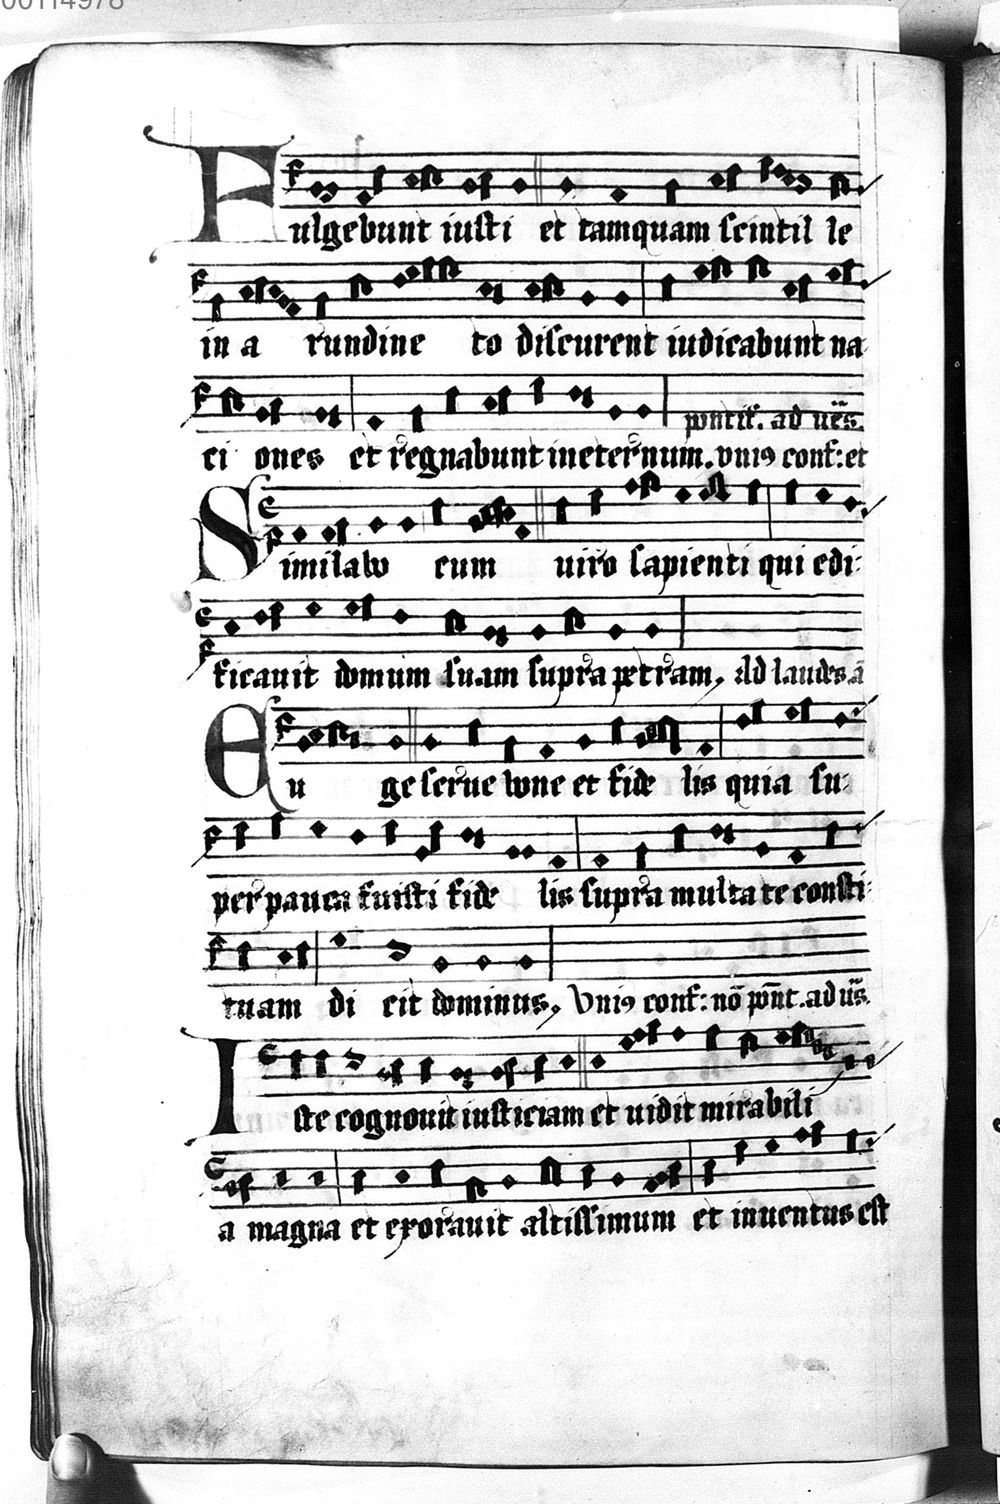 00114978
Fulgebunt iusti et tamquam scintil le
in a rundine to discurent iudicabunt na
pontif. ad ues.
ci ones et regnabunt in eternum. vni9 conf: et
Similabo eum uiro sapienti qui edi
ficauit domum suam supra petram, Ad laudes a
Eu ge serue bone et fide lis quia su
per pauca fuisti fide lis supra multa te consti
tuam di cit dominus, Vni9 conf: nō pont. ad us
Iste cognouit iusticiam et uidit mirabili
a magna et exorauit altissimum et inuentus est